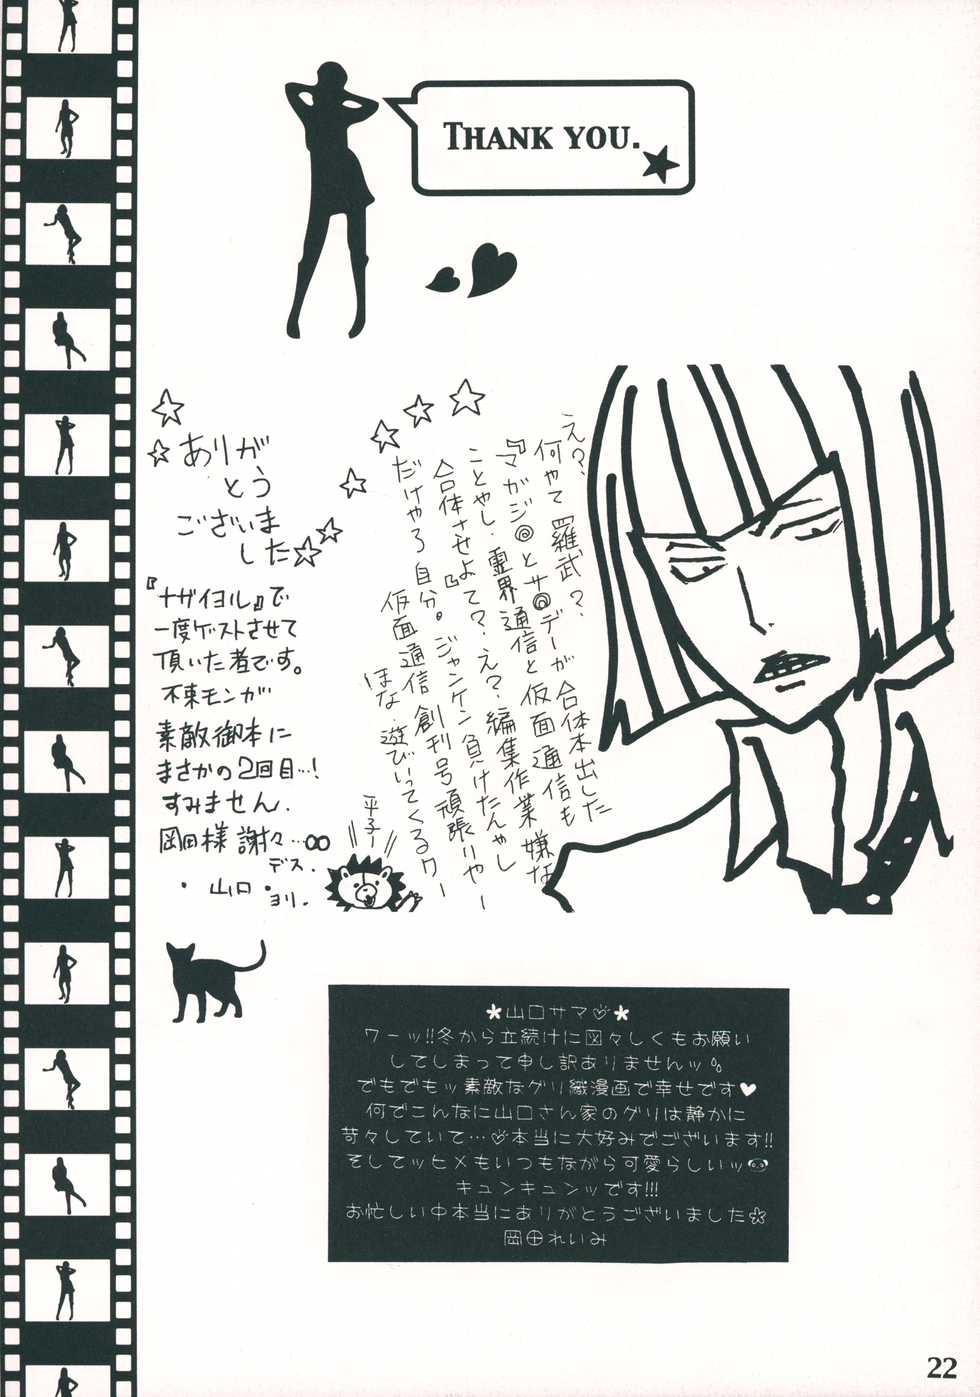 THANK YOU.
え？、
何やて 羅武？
『マガジ◎とサ◎デーが合体本出した
ことやし、霊界通信と仮面通信も
合体させよて？、え？、編集作業嫌な
だけやろ自分。』ジャンケン負けたんやし
仮面通信創刊号頑張りやー
ほな 遊びいってくるワー
平子ー
ありが
とう
ございま
した
『ナザイヨル』で
一度ゲストさせて
頂いた者です。
不束モンが
素敵御本に
まさかの2回目…！
すみません、
岡田様 謝々…∞
デス、
・山口・
ヨリ、
＊山口サマ♡＊
ワーッ!!冬から立続けに図々しくもお願い
してしまって申し訳ありませんッ。。
でもでもッ素敵なグリ織漫画で幸せです♥
何でこんなに山口さん家のグリは静かに
苛々していて…♡本当に大好みでございます!!
そしてッヒメもいつもながら可愛らしいッ
キュンキュンッです!!!
お忙しい中本当にありがとうございました☆
岡田れいみ
22